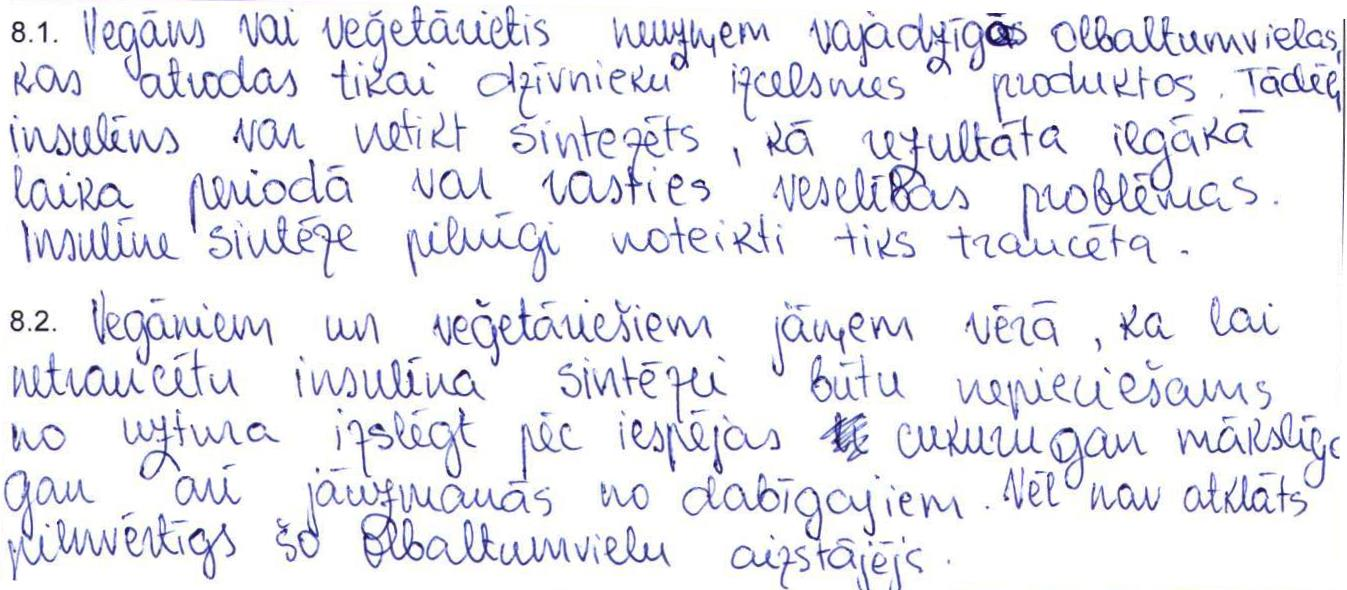 8.1. Vegāns vai veģetārietis neuzņem vajadzīgās olbaltumvielas,
kas atrodas tikai dzīvnieku izcelsmes produktos. Tādēļ
insulīns var netikt sintezēts, kā rezultāta ilgākā
laika periodā var rasties veselības problēmas.
Insulīne sintēze pilnīgi noteikti tiks traucēta.
8.2. Vegāniem un veģetāriešiem jāņem vērā, ka lai
netraucētu insulīna sintēzei būtu nepieciešams
no uztura izslēgt pēc iespējas cukuru gan mākslīgo
gan arī jāuzmanās no dabīgajiem. Vēl nav atklāts
pilnvērtīgs šo olbaltumvielu aizstājējs.